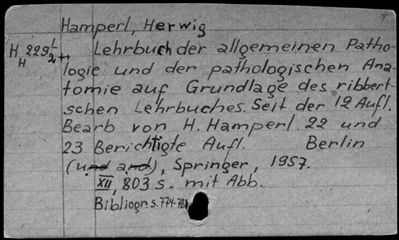 Hamperl, Herwig
H 229 L
H 2+n
Lehrbuch der allgemeinen Patho-
logie und der pathologischen Ana-
tomie auf Grundlage des ribbert-
schen Lehrbuches. Seit der 12 Aufl.
Bearb von H. Hamperl. 22 und
23 Berichtigte Aufl. Berlin
(und and), Springer, 1957.
XII, 803 s. mit Abb.
Bibliogr. s. 774-781